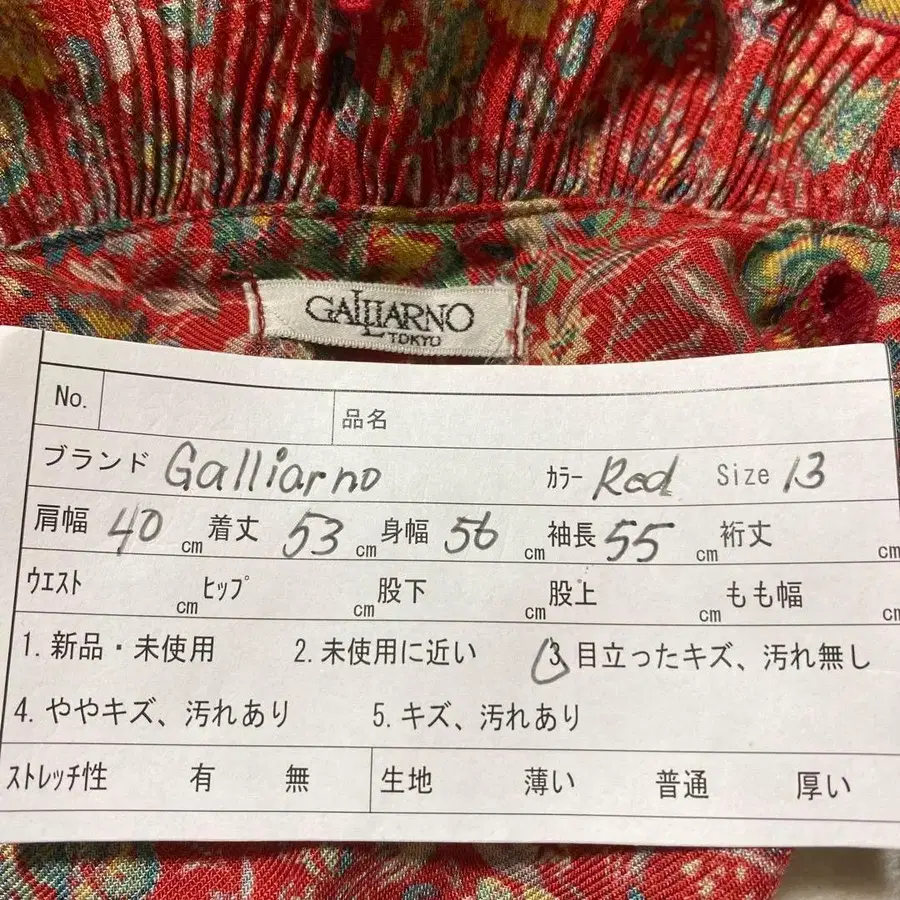 GALLIARNO
TOKYO
No. 品名
ブランド Galliarno カラー Red Size 13
肩幅 40 cm 着丈 53 cm 身幅 56 cm 袖長 55 cm 裄丈 cm
ウエスト cm ヒップ cm 股下 cm 股上 cm もも幅 cm
1. 新品・未使用 2. 未使用に近い 3. 目立ったキズ、汚れ無し
4. ややキズ、汚れあり 5. キズ、汚れあり
ストレッチ性 有 無 生地 薄い 普通 厚い